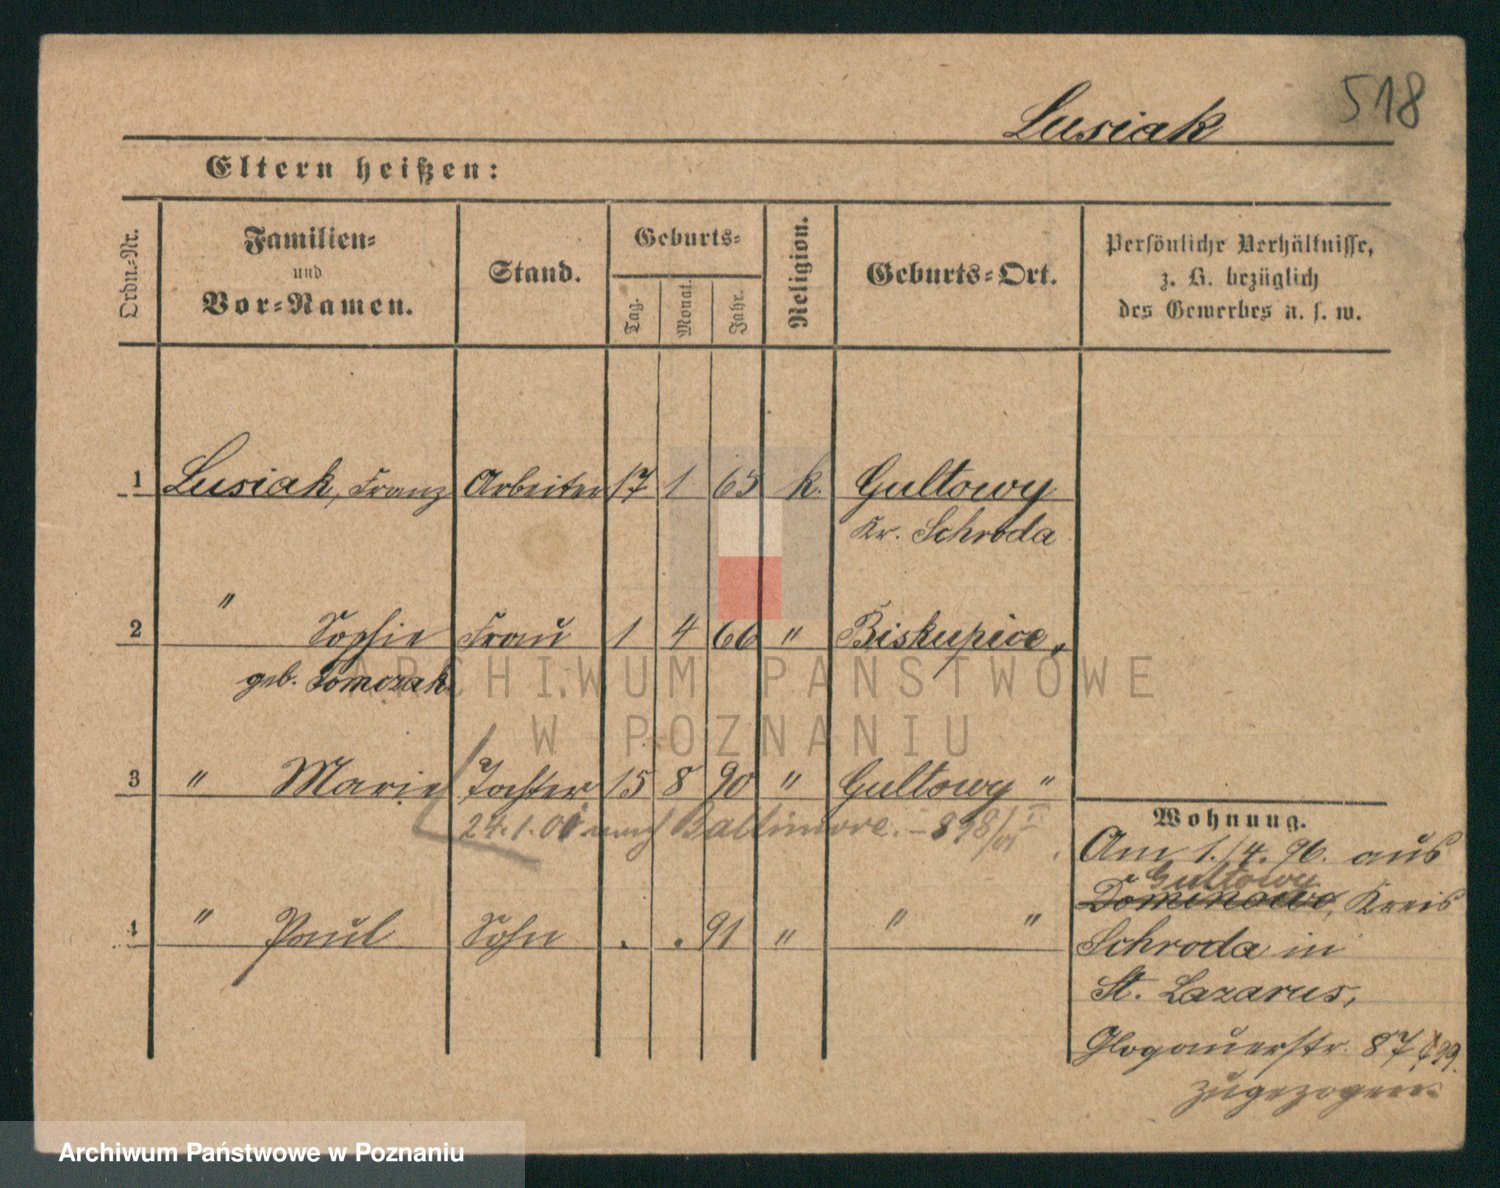 518
Lusiak
Eltern heißen:
Ordn.-Nr.
Familien-
und
Vor-Namen.
Stand.
Geburts-
Tag.
Monat.
Jahr.
Religion.
Geburts-Ort.
Persönliche Verhältnisse,
z. B. bezüglich
des Gewerbes u. s. w.
1 Lusiak, Franz Arbeiter 17 1 65 k. Gultowy
Kr. Schroda
2 " Sophie Frau 1 4 66 " Biskupice "
geb. Tomczak
3 " Marie Tochter 15 8 90 " Gultowy "
24. 1. 00 nach Baltimore. - 898/
4 " Paul Sohn . . 91 " " "
Wohnung.
Am 1./4. 96. aus
Gultowy
Dominowo, Kreis
Schroda in
St. Lazarus,
Glogauerstr. 87
zugezogen.
ARCHIWUM PAŃSTWOWE
W POZNANIU
Archiwum Państwowe w Poznaniu